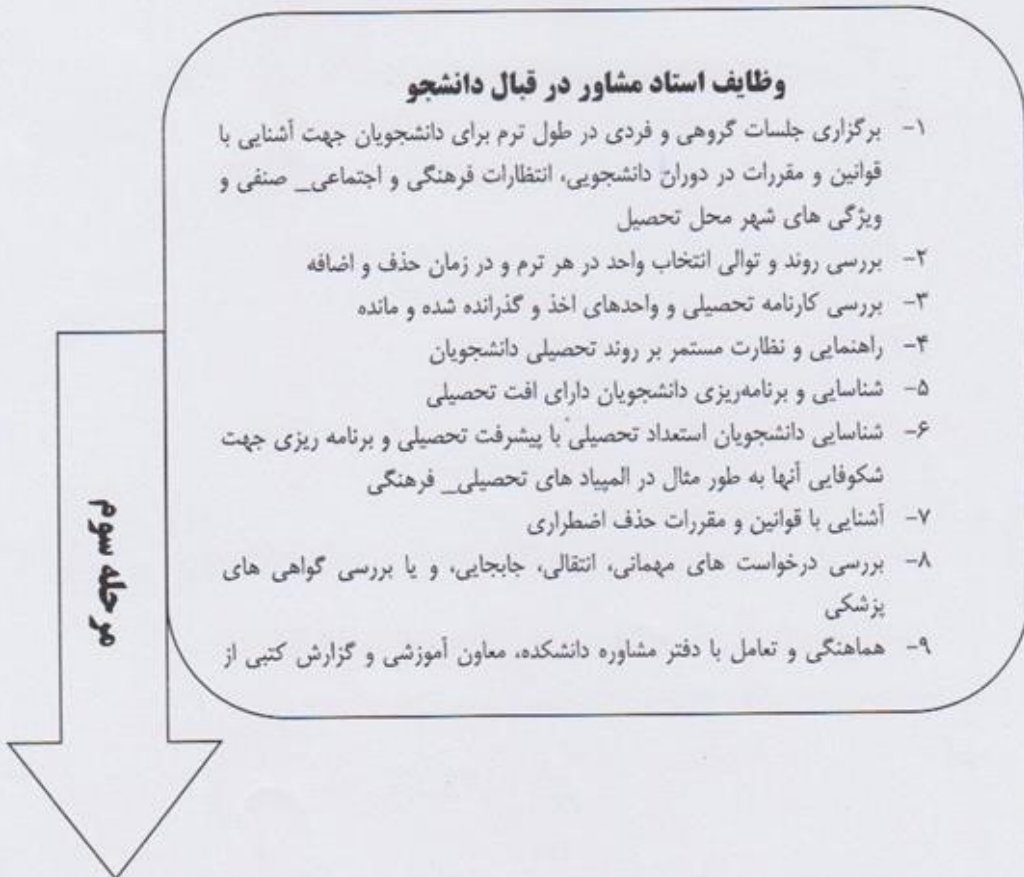 وظایف استاد مشاور در قبال دانشجو
۱- برگزاری جلسات گروهی و فردی در طول ترم برای دانشجویان جهت آشنایی با
قوانین و مقررات در دوران دانشجویی، انتظارات فرهنگی و اجتماعی_ صنفی و
ویژگی های شهر محل تحصیل
۲- بررسی روند و توالی انتخاب واحد در هر ترم و در زمان حذف و اضافه
۳- بررسی کارنامه تحصیلی و واحدهای اخذ و گذرانده شده و مانده
۴- راهنمایی و نظارت مستمر بر روند تحصیلی دانشجویان
۵- شناسایی و برنامه‌ریزی دانشجویان دارای افت تحصیلی
۶- شناسایی دانشجویان استعداد تحصیلی با پیشرفت تحصیلی و برنامه ریزی جهت
شکوفایی آنها به طور مثال در المپیاد های تحصیلی_ فرهنگی
۷- آشنایی با قوانین و مقررات حذف اضطراری
۸- بررسی درخواست های مهمانی، انتقالی، جابجایی، و یا بررسی گواهی های
پزشکی
۹- هماهنگی و تعامل با دفتر مشاوره دانشکده، معاون آموزشی و گزارش کتبی از
مرحله سوم